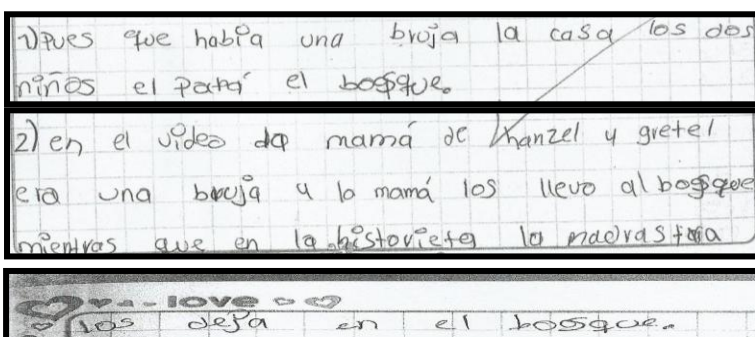 1) pues que había una bruja la casa los dos
niños el papá el bosque.
2) en el video la mamá de hanzel y gretel
era una bruja y la mamá los llevo al bosque
mientras que en la historieta la madrastra
love
los deja en el bosque.